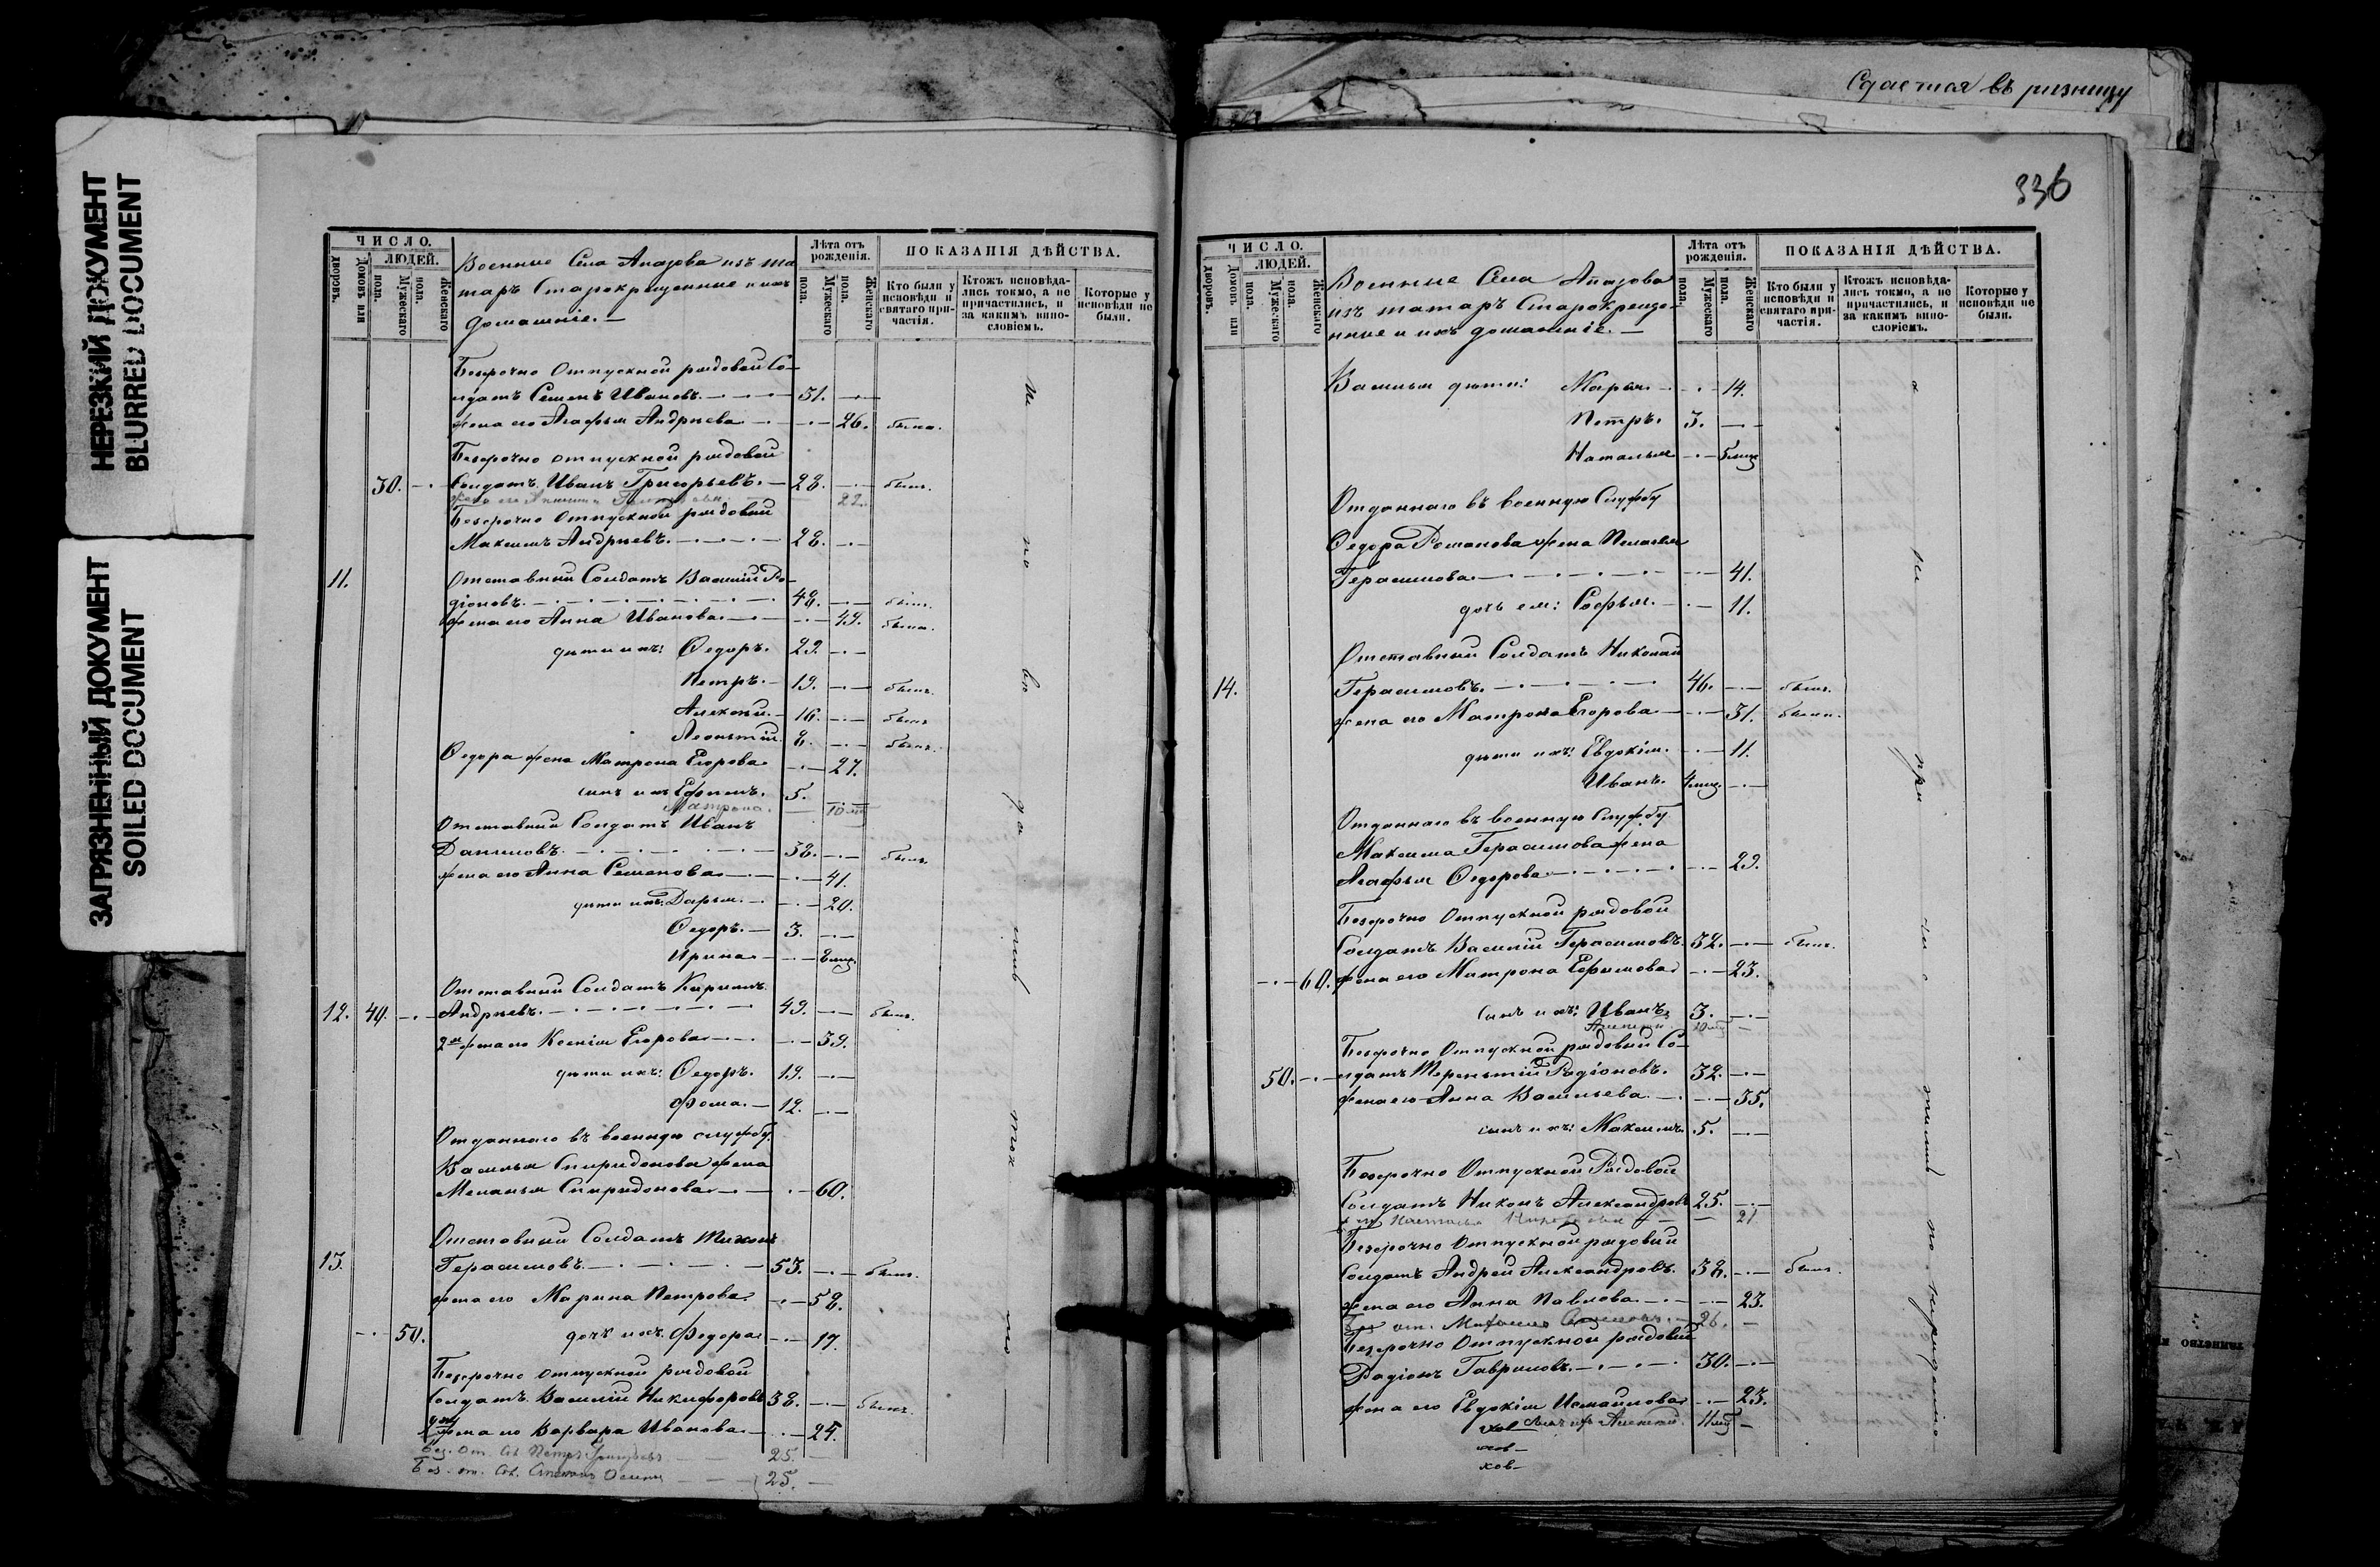 Сдается въ ризницу
336
НЕРЕЗКИЙ ДОКУМЕНТ
BLURRED DOCUMENT
ЗАГРЯЗНЕННЫЙ ДОКУМЕНТ
SOILED DOCUMENT
ЧИСЛО.
ЛЮДЕЙ.
Дворовъ.
Домовъ или
Мужескаго пола.
Женскаго пола.
Военные Села Апазова изъ та
таръ Старокрещенные и ихъ
домашніе.—
Лѣта отъ рожденія.
Мужескаго пола.
Женскаго пола.
ПОКАЗАНІЯ ДѢЙСТВА.
Кто были у исповѣди и святаго причастія.
Ктожъ исповѣдались токмо, а не причастились, и за какимъ винословіемъ.
Которые у исповѣди не были.
Безсрочно Отпускной рядовой Со-
лдатъ Семенъ Ивановъ. 31.
жена его Агафья Андреева 26. была.
Безсрочно отпускной рядовой
30. Солдатъ Иванъ Григорьевъ. 28. былъ.
жена его 22.
Безсрочно Отпускной рядовой
Максимъ Андреевъ. 28.
11. Отставный Солдатъ Василій Ро-
діоновъ. 48. былъ.
жена его Анна Иванова 49. была.
дѣти ихъ: Ѳедоръ. 29.
Петръ. 19. былъ.
Алексѣй. 16. былъ
Леонтій. 8. былъ.
Ѳедора жена Матрона Егорова 27.
сынъ ихъ Ефимъ. 5.
Матрона. 10 мѣ
Отставный Солдатъ Иванъ
Даниловъ. 58. былъ.
жена его Анна Семенова 41.
дѣти ихъ: Дарья. 20.
Ѳедоръ. 3.
Ирина 8 мѣц.
Отставный Солдатъ Кирилъ
12. 40. Андреевъ. 49. былъ.
2я жена его Ксенія Егорова 39.
дѣти ихъ: Ѳедоръ. 19.
Ѳома. 12.
Отданнаго въ военную службу
Василья Спиридонова жена
Меланья Спиридонова 60.
Отставный Солдатъ Тихонъ
13. Герасимовъ. 53. былъ.
жена его Марина Петрова 58.
50. дочь ихъ Федора 17.
Безсрочно отпускной рядовой
Солдатъ Василій Никифоровъ 38. былъ.
жена его Варвара Иванова 24.
Без. От. Сол. Петръ Григорьевъ 25.
Без. от. Сол. Степанъ Осиповъ 25.
ЧИСЛО.
ЛЮДЕЙ.
Дворовъ.
Домовъ или
Мужескаго пола.
Женскаго пола.
Военные Села Апазова
изъ татаръ Старокреще-
нные и ихъ домашніе.—
Лѣта отъ рожденія.
Мужескаго пола.
Женскаго пола.
ПОКАЗАНІЯ ДѢЙСТВА.
Кто были у исповѣди и святаго причастія.
Ктожъ исповѣдались токмо, а не причастились, и за какимъ винословіемъ.
Которые у исповѣди не были.
Василья дѣти: Марья. 14.
Петръ. 3.
Наталья 5 мѣц
Отданнаго въ военную Службу
Ѳедора Романова жена Пелагья
Герасимова 41.
дочь ея: Софья. 11.
Отставный Солдатъ Николай
14. Герасимовъ. 46. былъ.
жена его Матрона Егорова 31. была.
дѣти ихъ: Евдокія. 11.
Иванъ. 4 мѣц.
Отданнаго въ военную Службу
Максима Герасимова жена
Агафья Ѳедорова 29.
Безсрочно Отпускной рядовой
Солдатъ Василій Герасимовъ. 32. былъ.
60. жена его Матрона Ефимова 23.
сынъ ихъ: Иванъ. 3.
Алексѣй 10 мѣ
Безсрочно Отпускной рядовый Со-
50. лдатъ Терентій Родіоновъ. 32.
жена его Анна Васильева 35.
сынъ ихъ: Максимъ. 5.
Безсрочно Отпускной Рядовой
Солдатъ Никонъ Александровъ 25.
Настасья 21
Безсрочно Отпускной рядовый
Солдатъ Андрей Александровъ. 38. былъ.
жена его Анна Павлова 23.
Без от. 26.
Безсрочно Отпускной рядовый
Родіонъ Гавриловъ. 30.
жена его Евдокія Исмаилова 23.
сынъ ихъ Алексѣй. 11 мѣ